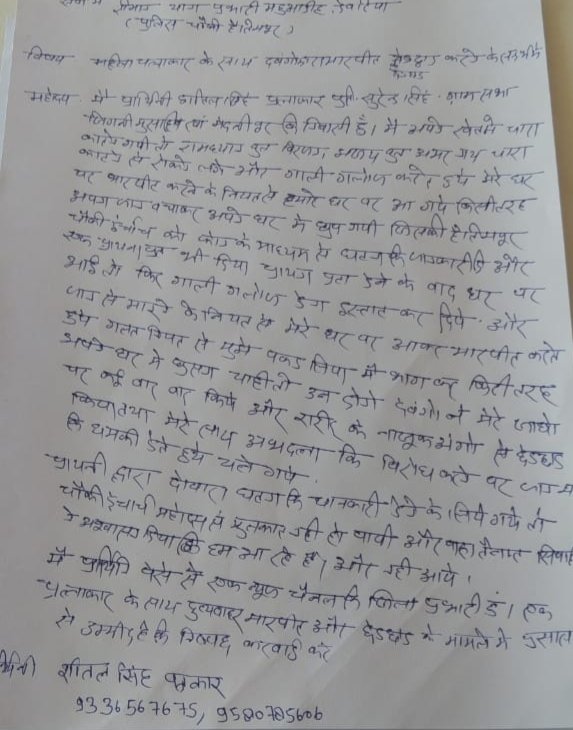 थाना प्रभारी
(पुलिस चौकी हेतिमपुर)
विषय महिला पत्रकार के साथ मारपीट छेड़छाड़ करने के
महोदय मै प्रार्थिनी शीतल सिंह पत्रकार पुत्री सुरेन्द्र सिंह ग्राम सभा
कि निवासी हूँ। मै अपने खेतमे चारा
काटने गयी थी पुत्र पुत्र चारा
काटने से रोकने लगे और गाली गलौज करते हुये मेरे घर
पर मारपीट करने के नियत से हमारे घर पर आ गये किसी तरह
अपना जान बचाकर अपने घर मे घुस गयी जिसकी हेतिमपुर
चौकी इंचार्ज को फोन के माध्यम से घटना कि जानकारी दी और
एक प्रार्थना पत्र भी दिया प्रार्थना पत्र देने के बाद घर पर
गाली गलौज देना कर दिये और
जान से मारने के नियत से मेरे घर पर आकर मारपीट करते
हुये गलत नियत से मुझे पकड़ लिया मै भाग कर किसी तरह
अपने घर मे घुसना चाही तो उन लोगो दबंगो ने मेरे
पर कई बार वार किये और शरीर के नाजुक अंगो से छेड़छाड़
किया तथा मेरे साथ अभद्रता कि विरोध करने पर जान
कि धमकी देते हुये चले गये.
प्रार्थिनी द्वारा दोबारा घटना कि जानकारी देने के लिये गये तो
चौकी इंचार्ज महोदय से मुलाकात नही हो पायी और वहा तैनात सिपाही
ने आश्वासन दिया कि हम आ रहे है। और नही आये।
मै प्रार्थिनी पेशे से एक न्यूज चैनल कि जिला प्रभारी हूं। एक
पत्रकार के साथ दुर्व्यवहार मारपीट और छेड़छाड़ के मामले मे प्रशासन
से उम्मीद है कि निष्पक्ष कारवाई करे
शीतल सिंह पत्रकार
9336567675, 9580785606